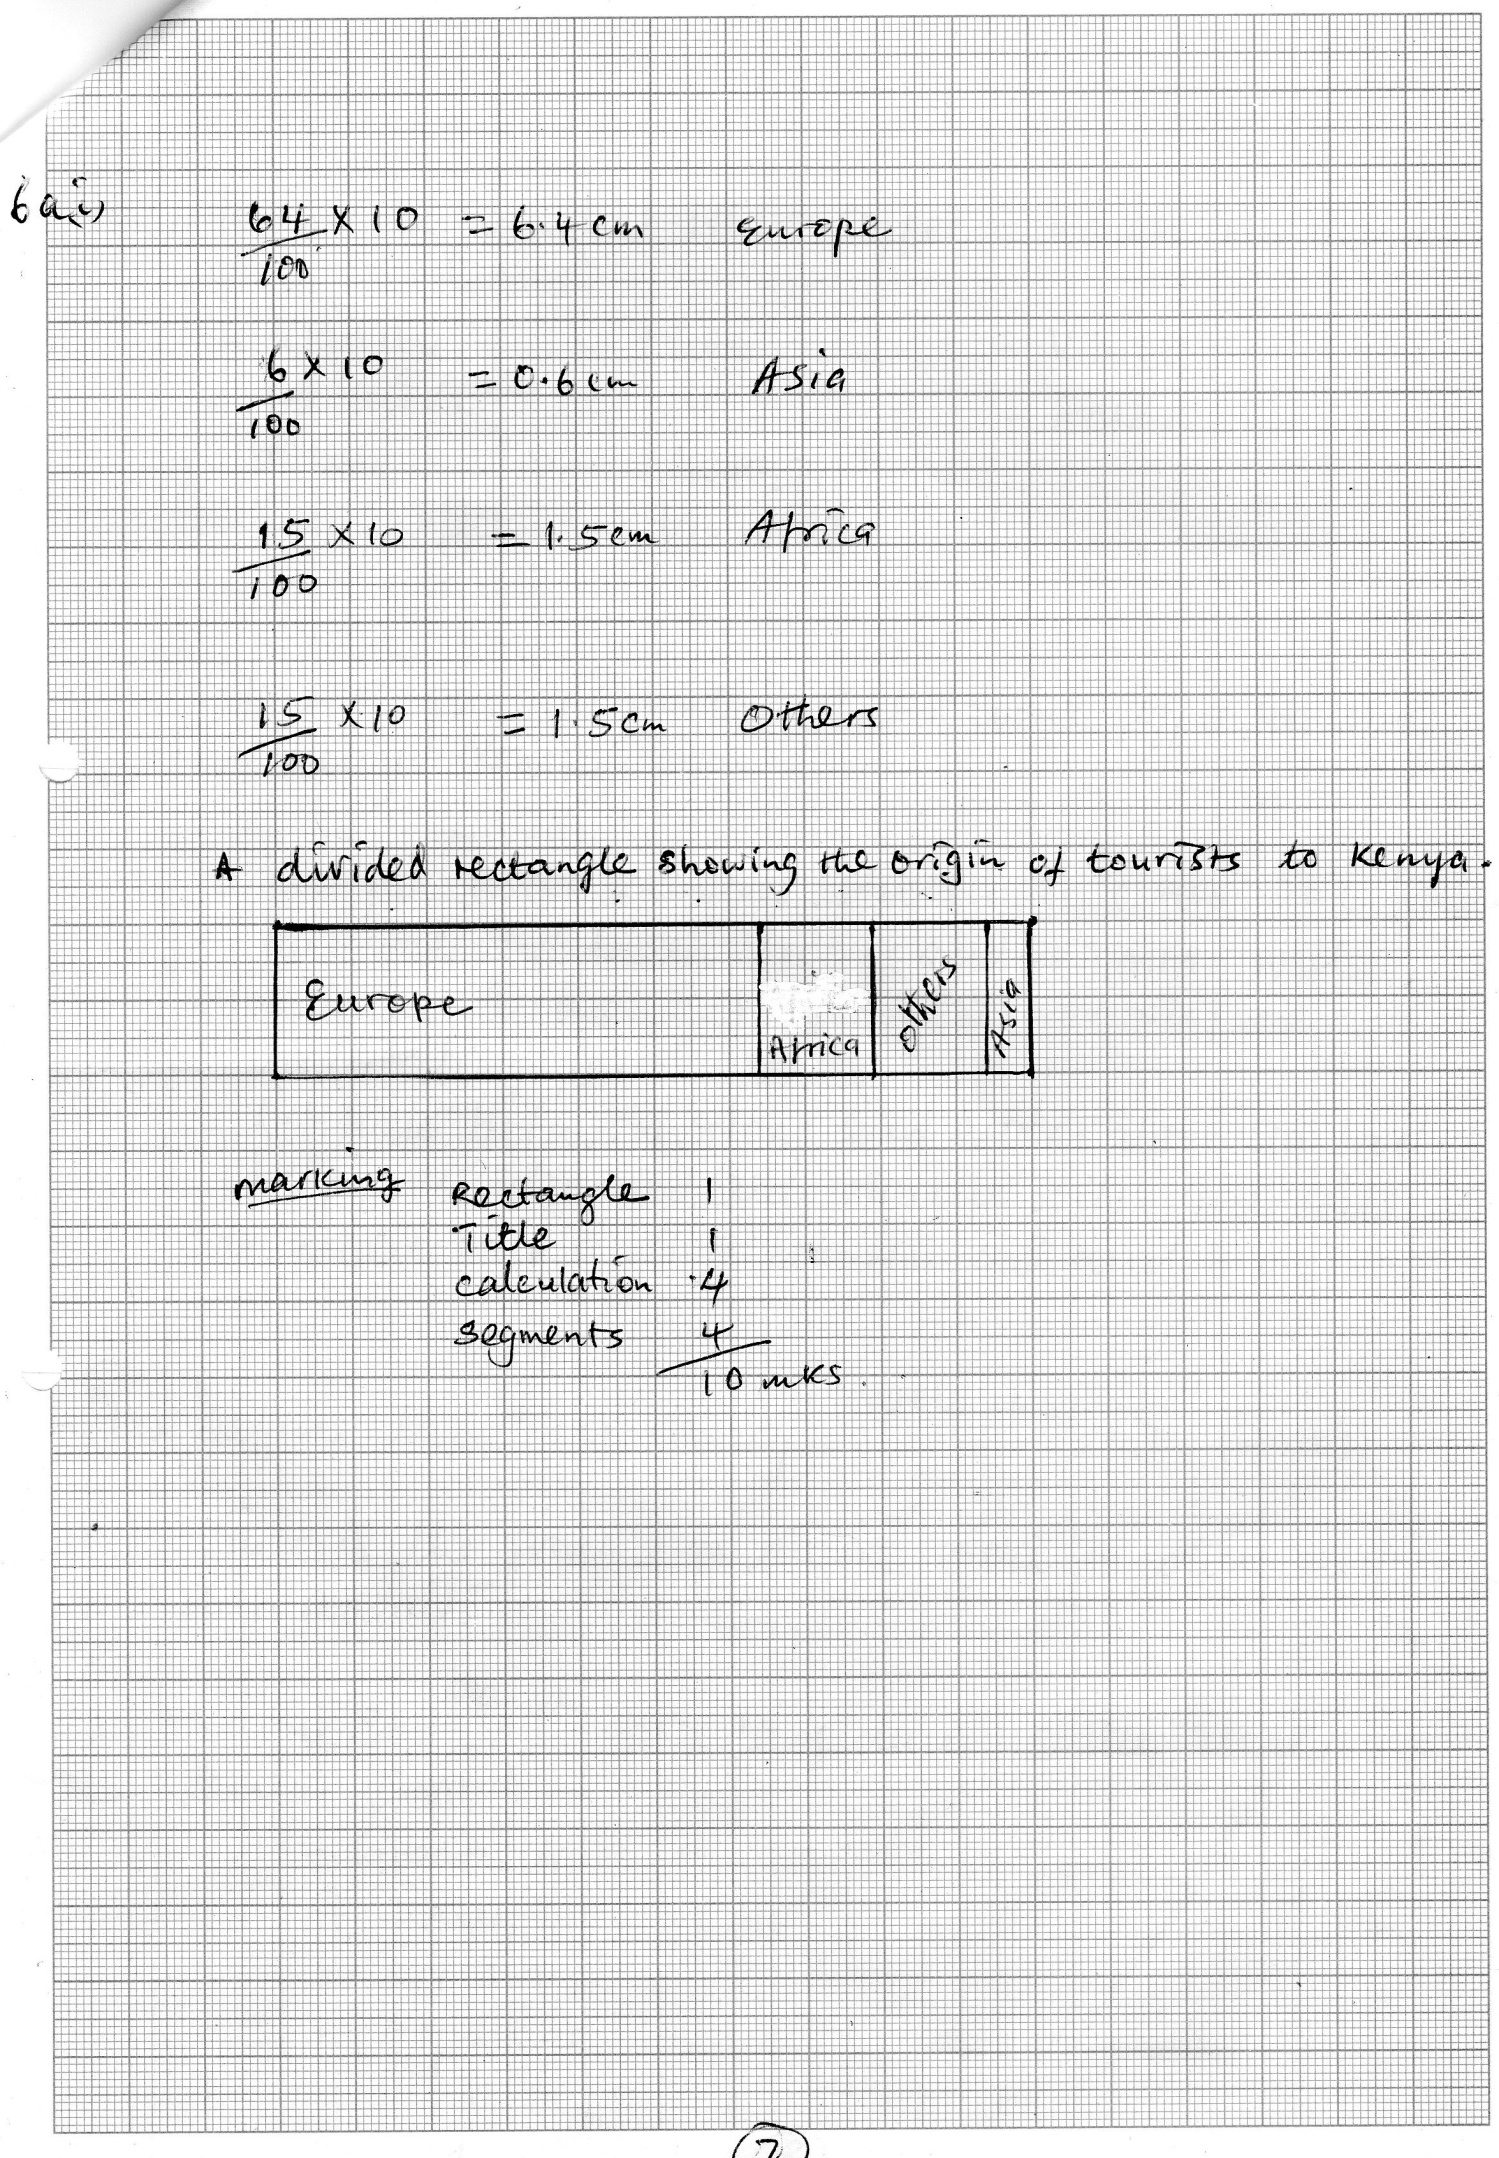 6 a(i)
64/100 × 10 = 6.4 cm Europe
6/100 × 10 = 0.6 cm Asia
15/100 × 10 = 1.5 cm Africa
15/100 × 10 = 1.5 cm Others
A divided rectangle showing the origin of tourists to Kenya.
Europe Africa Others Asia
marking Rectangle 1
Title 1
calculation 4
segments 4
10 mks.
7